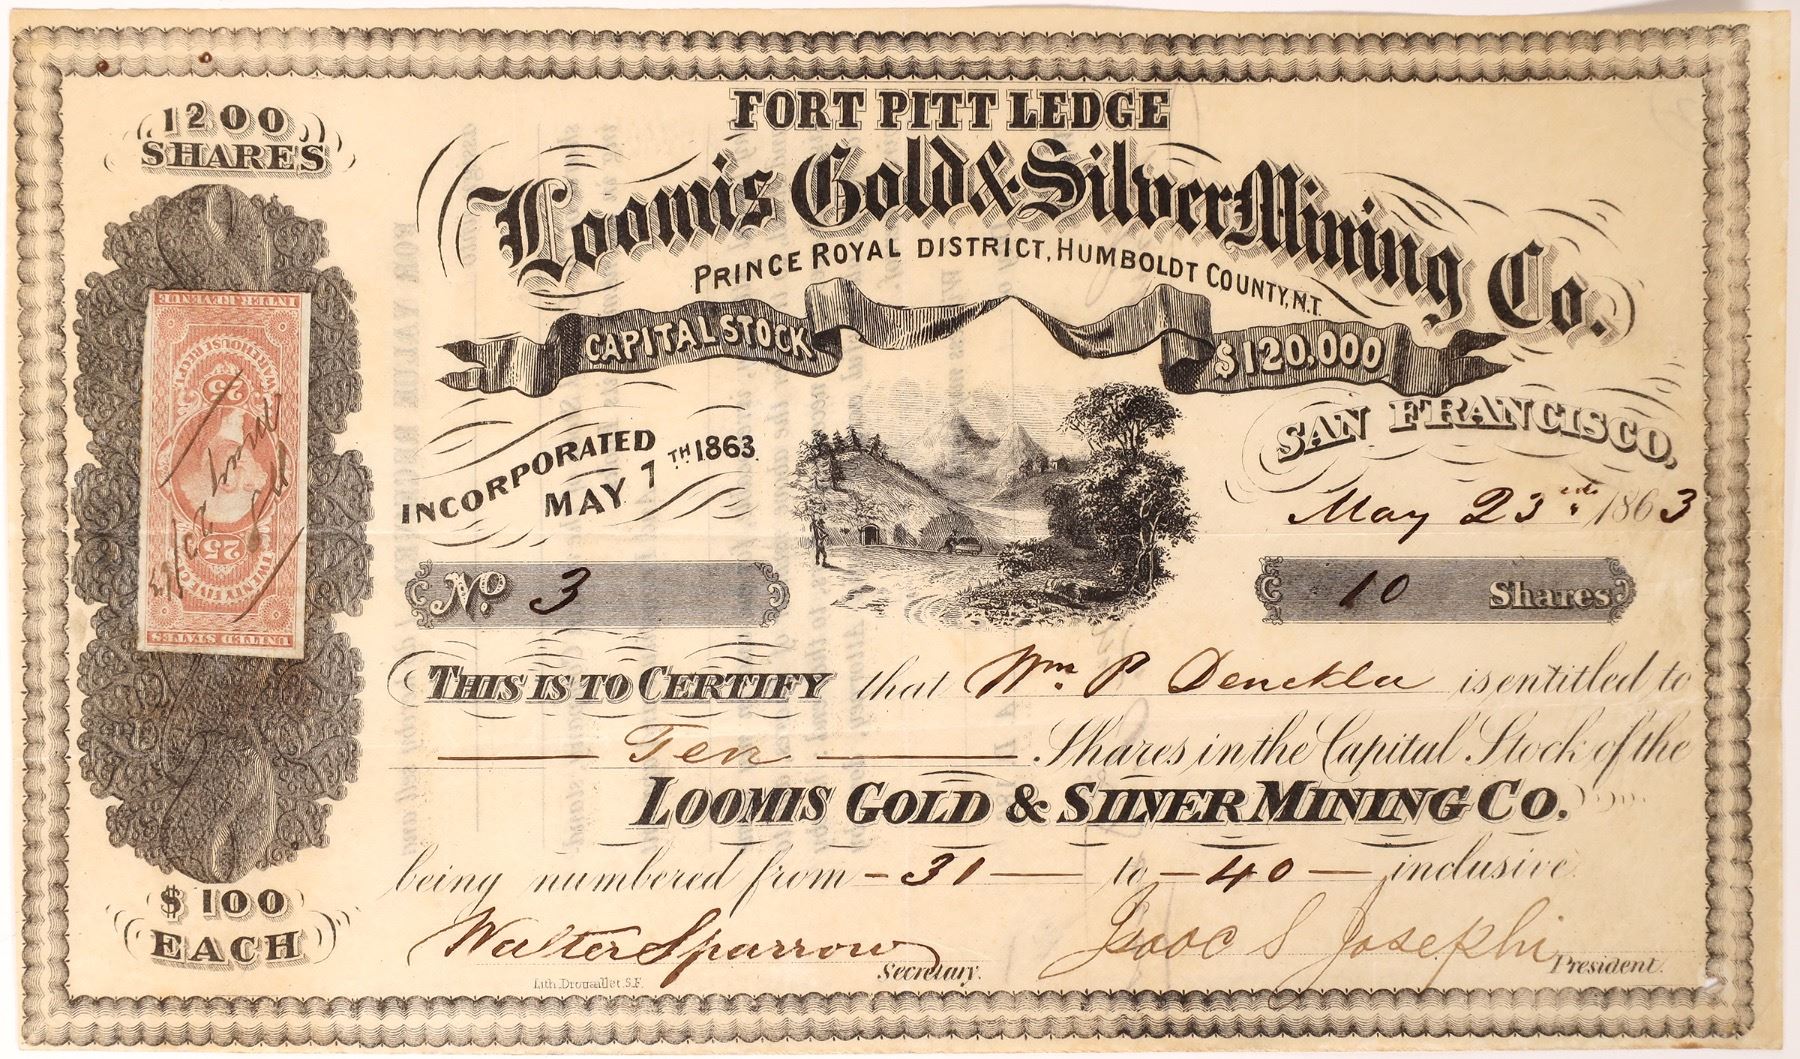 1200
SHARES
FORT PITT LEDGE
Loomis Gold & Silver Mining Co.
PRINCE ROYAL DISTRICT, HUMBOLDT COUNTY, N.T.
CAPITAL STOCK $120,000
INCORPORATED
MAY 7TH 1863.
SAN FRANCISCO,
May 23rd. 1863
No. 3
10 Shares
INTER. REVENUE
WAREHOUSE RCPT.
25
25
TWENTY FIVE CTS
UNITED STATES
THIS IS TO CERTIFY that Wm. P Denckla is entitled to
Ten Shares in the Capital Stock of the
LOOMIS GOLD & SILVER MINING CO.
being numbered from - 31 - to - 40 - inclusive.
$100
EACH
Walter Sparrow Secretary.
Isaac S Josephi President.
Lith. Drouaillet. S.F.